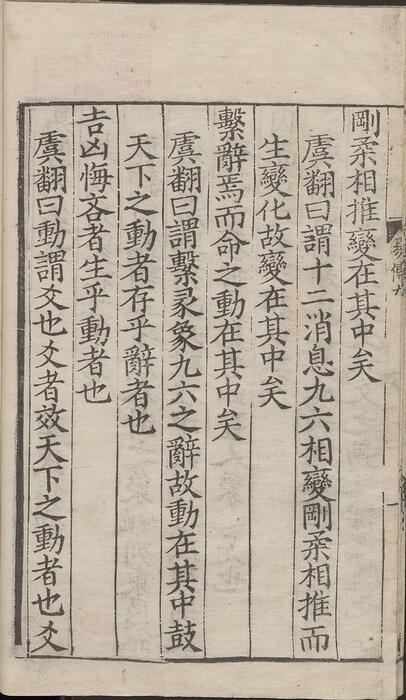 剛柔相推變在其中矣
虞翻曰謂十二消息九六相變剛柔相推而
生變化故變在其中矣
繫辭焉而命之動在其中矣
虞翻曰謂繫彖象九六之辭故動在其中鼓
天下之動者存乎辭者也
吉凶悔吝者生乎動者也
虞翻曰動謂爻也爻者效天下之動者也爻